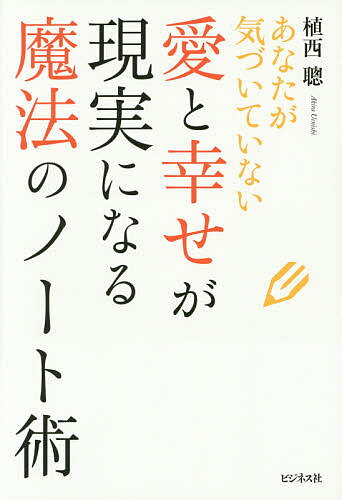 植西 聰
Akira Uenishi
あなたが
気づいていない
愛と幸せが
現実になる
魔法のノート術
ビジネス社